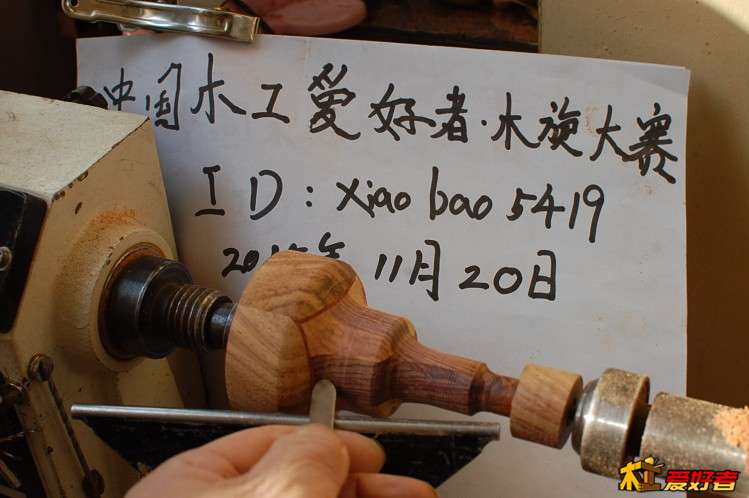 中国木工爱好者·木旋大赛
ID:xiaobao5419
年11月20日
木工爱好者